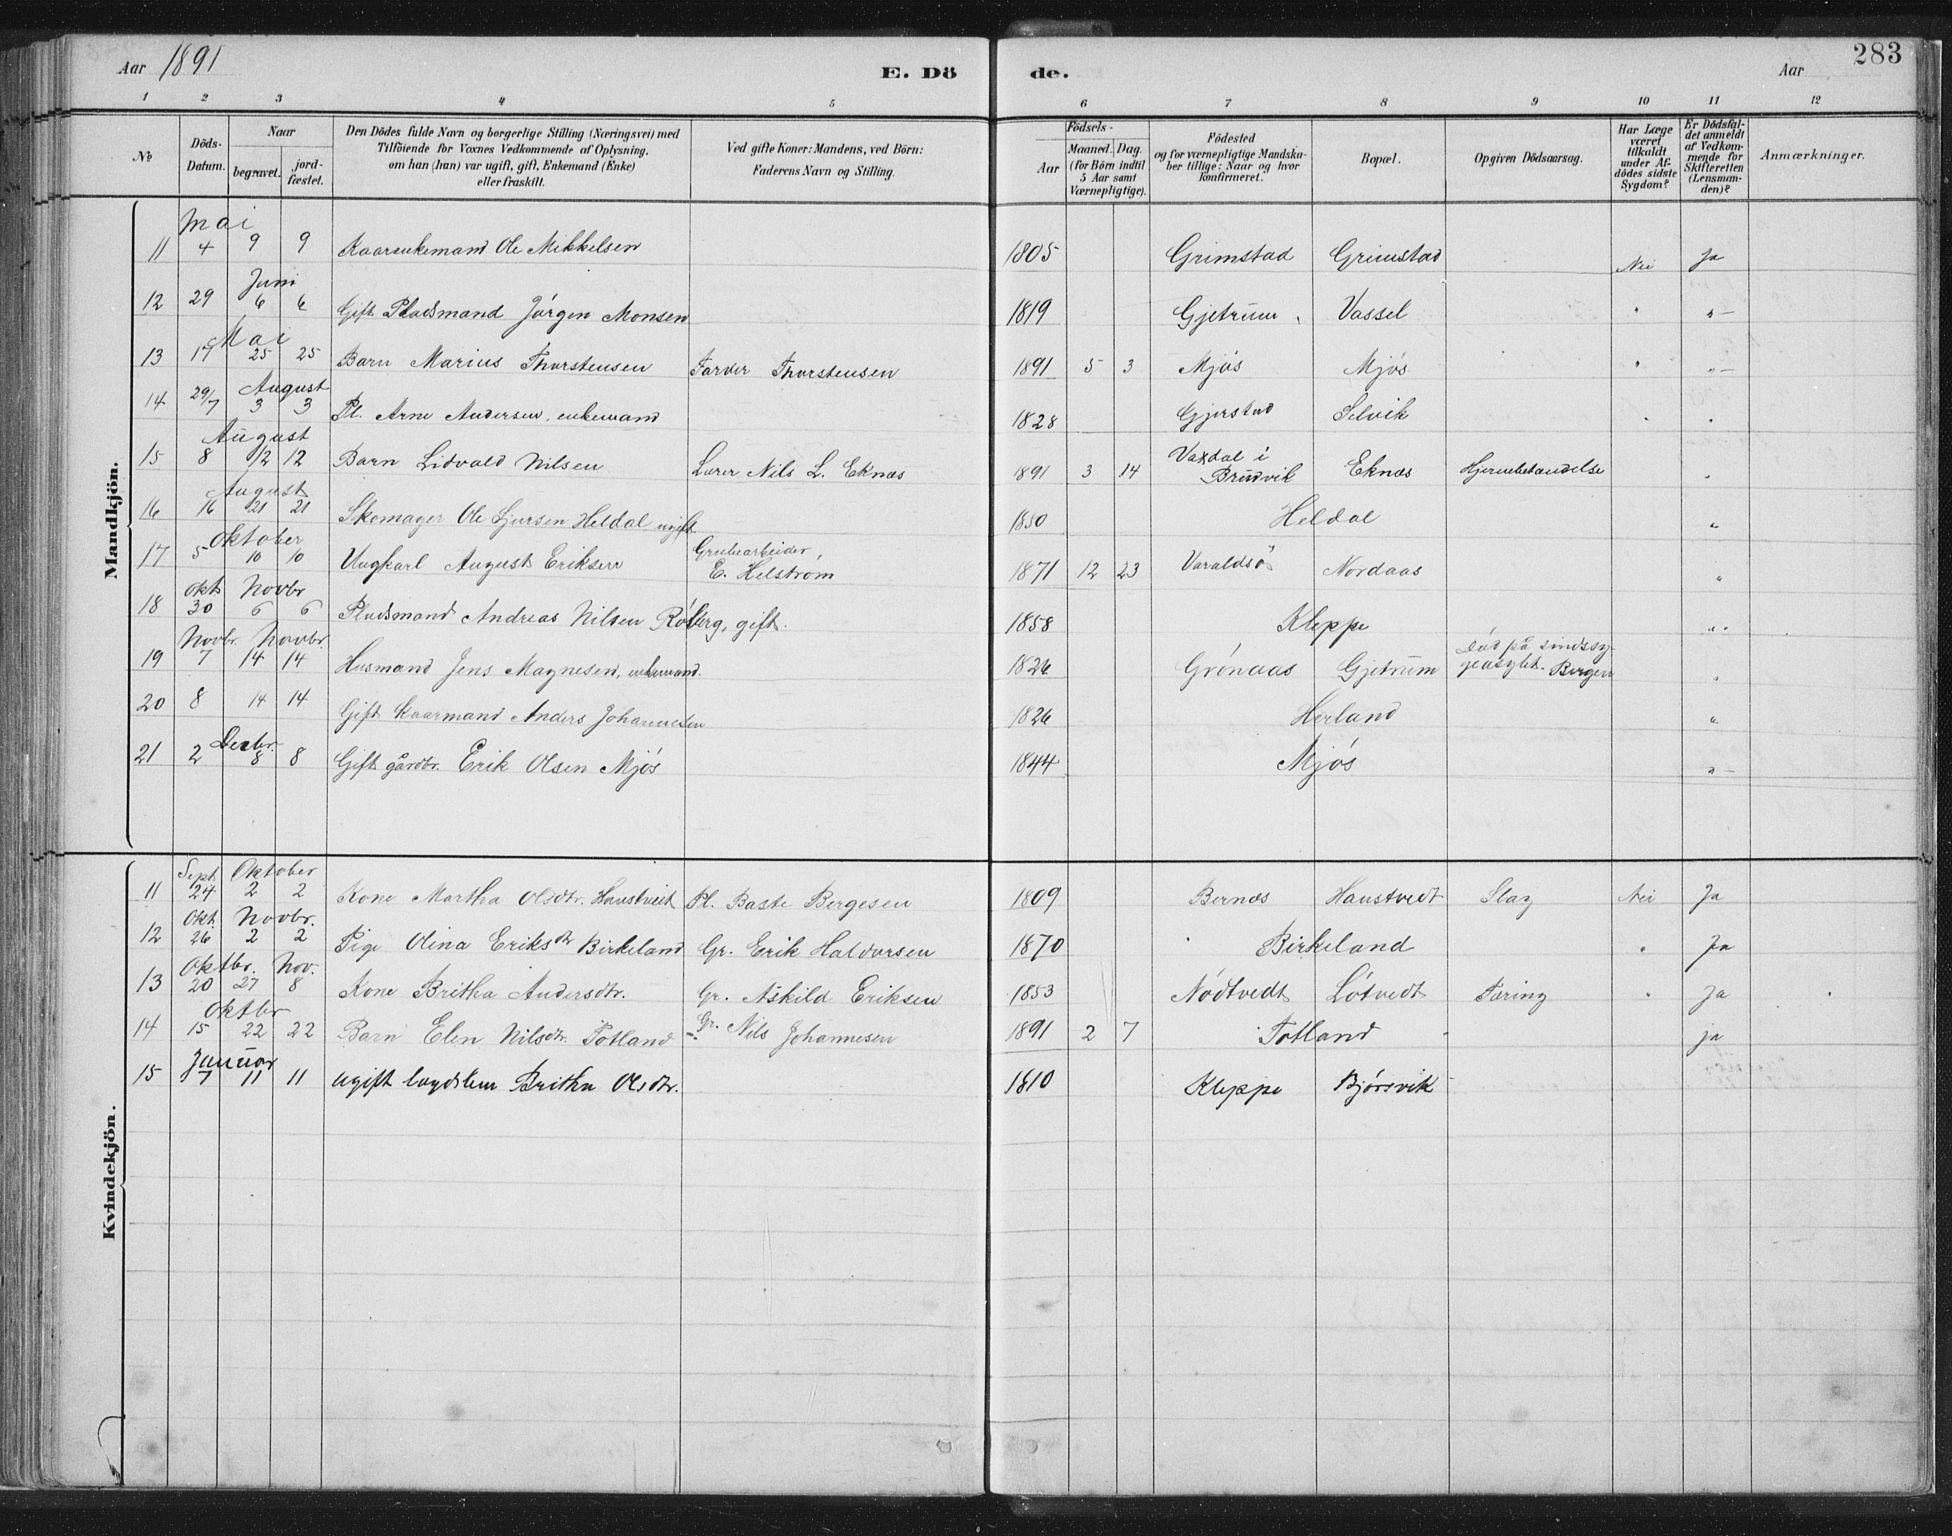 Aar 1891
E. Dö de.
Aar 283
1 2 3 4 5 6 7 8 9 10 11 12
No
Döds-Datum.
Naar
begravet.
jord-fæstet.
Den Dödes fulde Navn og borgerlige Stilling (Næringsvei) med
Tilföiende for Voxnes Vedkommende af Oplysning,
om han (hun) var ugift, gift, Enkemand (Enke)
eller fraskilt.
Ved gifte Koner: Mandens, ved Börn:
Faderens Navn og Stilling.
Födsels-
Aar
Maaned. Dag.
(for Börn indtil
5 Aar samt
Værnepligtige).
Födested
og for værnepligtige Mandska-
ber tillige: Naar og hvor
konfirmeret.
Bopæl.
Opgiven Dödsaarsag.
Har Læge
været
tilkaldt
under Af-
dödes sidste
Sygdom?
Er Dödsfal-
det anmeldt
af Vedkom-
mende for
Skifteretten
(Lensman-
den)?
Anmærkninger.
Mandkjön.
Mai
11 4 9 9 Kaarenkemand Ole Mikkelsen 1805 Grimstad Grimstad Nei Ja
Juni
12 29 6 6 Gift Pladsmand Jórgen Monsen 1819 Gjetrum Vassel " "-
Mai
13 17 25 25 Barn Marius Thorstensen Farver Thorstensen 1891 5 3 Mjós Mjós " "-
August
14 29/7 3 3 Pl. Arne Andersen, enkemand 1828 Gjerstad Selvik " "
August
15 8 12 12 Barn Lidvald Nilsen Lærer Nils L. Eknæs 1891 3 14 Vaxdal i Brudvik Eknæs Hjernebetændelse "
August
16 16 21 21 Skomager Ole Ljursen Heldal ugift 1850 Heldal "
Oktober
17 5 10 10 Ungkarl August Eriksen Grubearbeider, E. Helstrom 1871 12 23 Varaldsö Nordaas "
Okt Novbr
18 30 6 6 Pladsmand Andreas Nilsen Róberg, gift. 1858 Kleppe "
Novbr. Novbr.
19 7 14 14 Husmand Jens Magnesen, enkemand. 1826 Grónaas Gjetrum Dód på sindssygeasylet. Bergen "
20 8 14 14 Gift Kaarmand Anders Johannesen 1826 Herland "
Decbr.
21 2 8 8 Gift gårdbr. Erik Olsen Mjós 1844 Mjós "-
Kvindekjön.
Sept Oktober
11 24 2 2 Kone Martha Olsdtr. Haustveit Pl. Baste Bergesen 1809 Bernæs Haustvedt Slag Nei Ja
Okt. Novbr.
12 26 2 2 Pige Olina Eriksdtr Birkeland Gr. Erik Haldorsen 1870 Birkeland " Ja
Oktbr. Nov.
13 20 27 8 Kone Britha Andersdtr. Gr. Askild Eriksen 1853 Nódtvedt Lótvedt Tæring " Ja
Oktbr
14 15 22 22 Barn Elen Nilsdtr. Totland Gr. Nils Johannesen 1891 2 7 Totland ja
Januar
15 7 11 11 ugift lægdslem Britha Olsdtr. 1810 Kleppe Bjórsvik